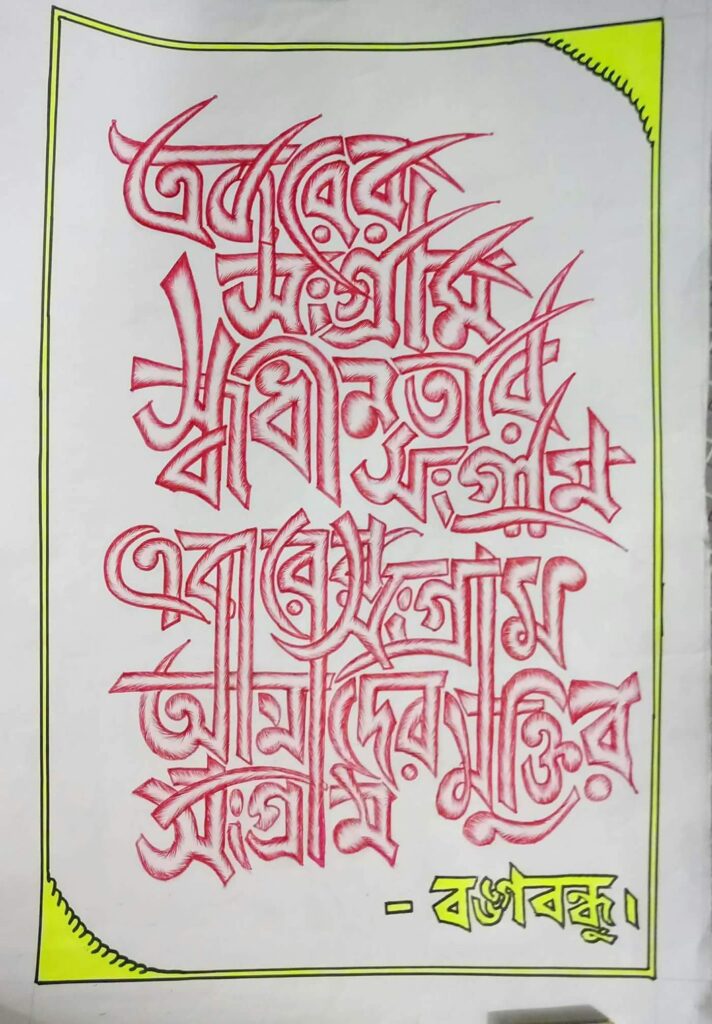 এবারের
সংগ্রাম
স্বাধীনতার
সংগ্রাম
এবারের সংগ্রাম
আমাদের মুক্তির
সংগ্রাম
- বঙ্গবন্ধু।